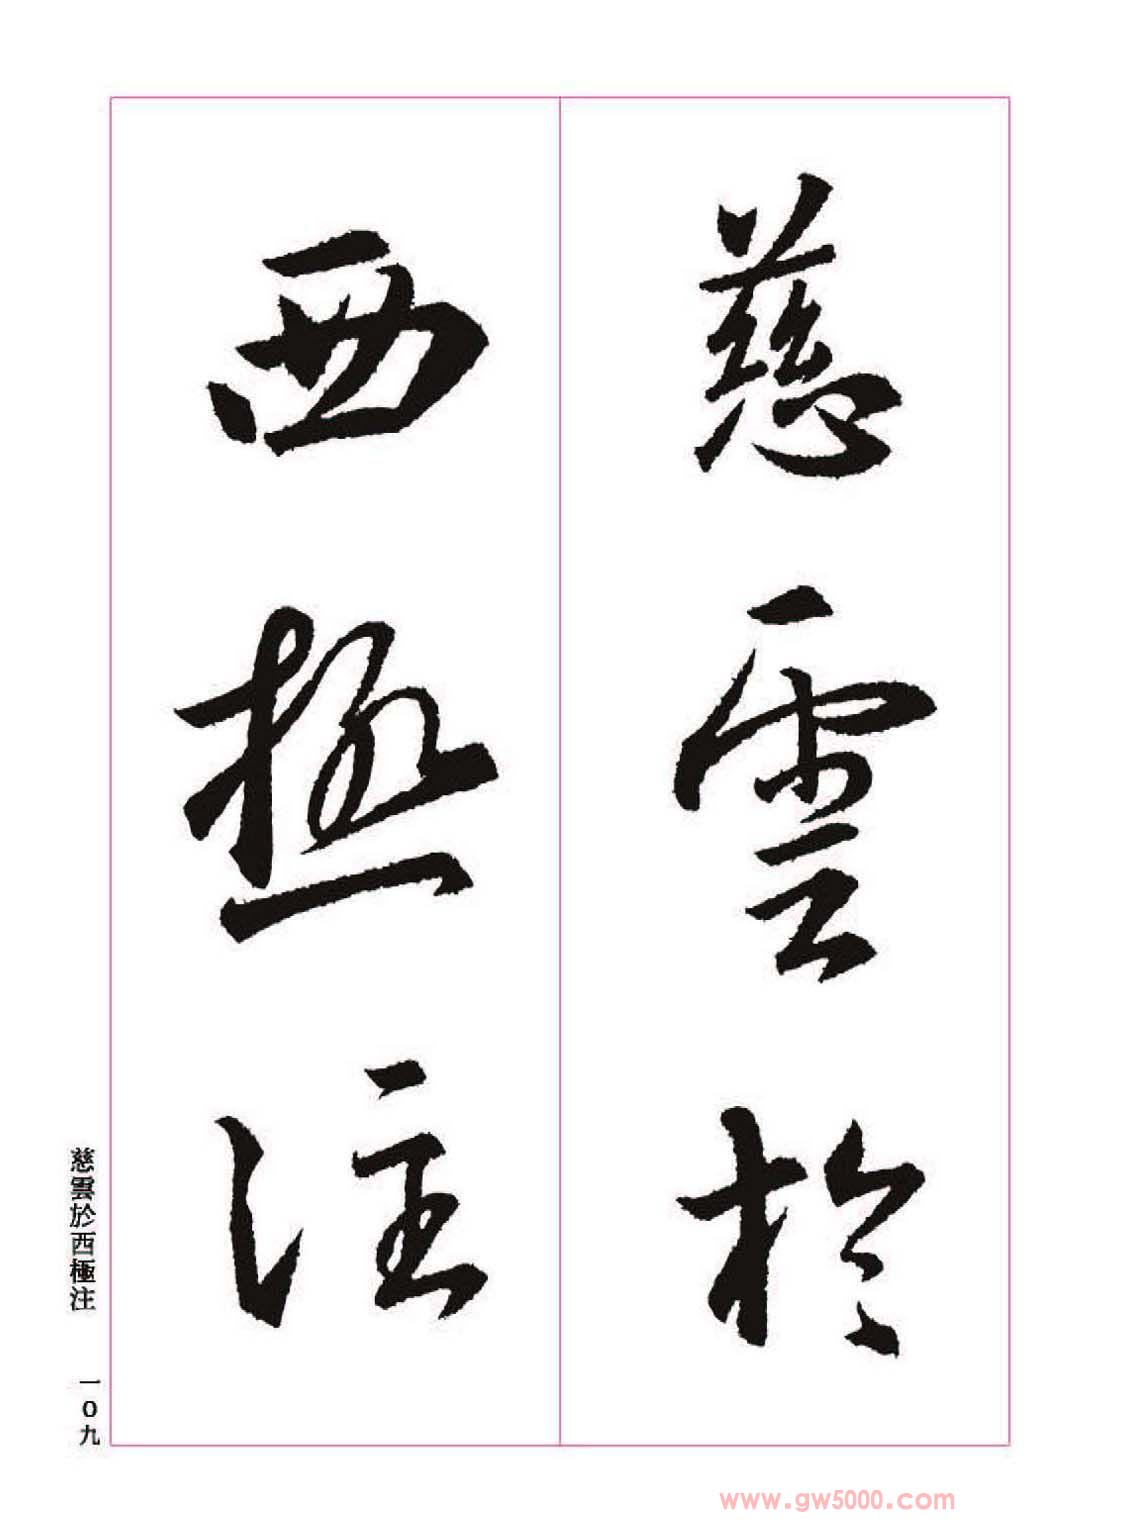 慈雲於
西極注
慈雲於西極注
一〇九
www.gw5000.com